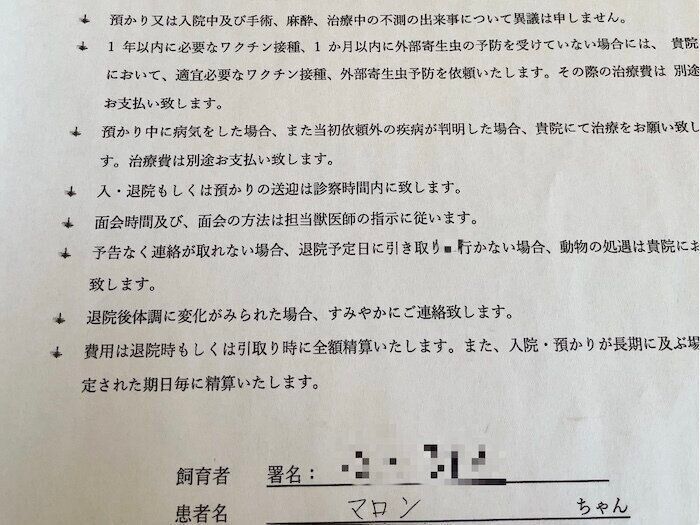 預かり又は入院中及び手術、麻酔、治療中の不測の出来事について異議は申しません。
1 年以内に必要なワクチン接種、1 か月以内に外部寄生虫の予防を受けていない場合には、貴院
において、適宜必要なワクチン接種、外部寄生虫予防を依頼いたします。その際の治療費は 別途
お支払い致します。
預かり中に病気をした場合、また当初依頼外の疾病が判明した場合、貴院にて治療をお願い致し
す。治療費は別途お支払い致します。
入・退院もしくは預かりの送迎は診察時間内に致します。
面会時間及び、面会の方法は担当獣医師の指示に従います。
予告なく連絡が取れない場合、退院予定日に引き取り 行かない場合、動物の処遇は貴院にお
致します。
退院後体調に変化がみられた場合、すみやかにご連絡致します。
費用は退院時もしくは引取り時に全額精算いたします。また、入院・預かりが長期に及ぶ場
定された期日毎に精算いたします。
飼育者 署名：
患者名 マロン ちゃん